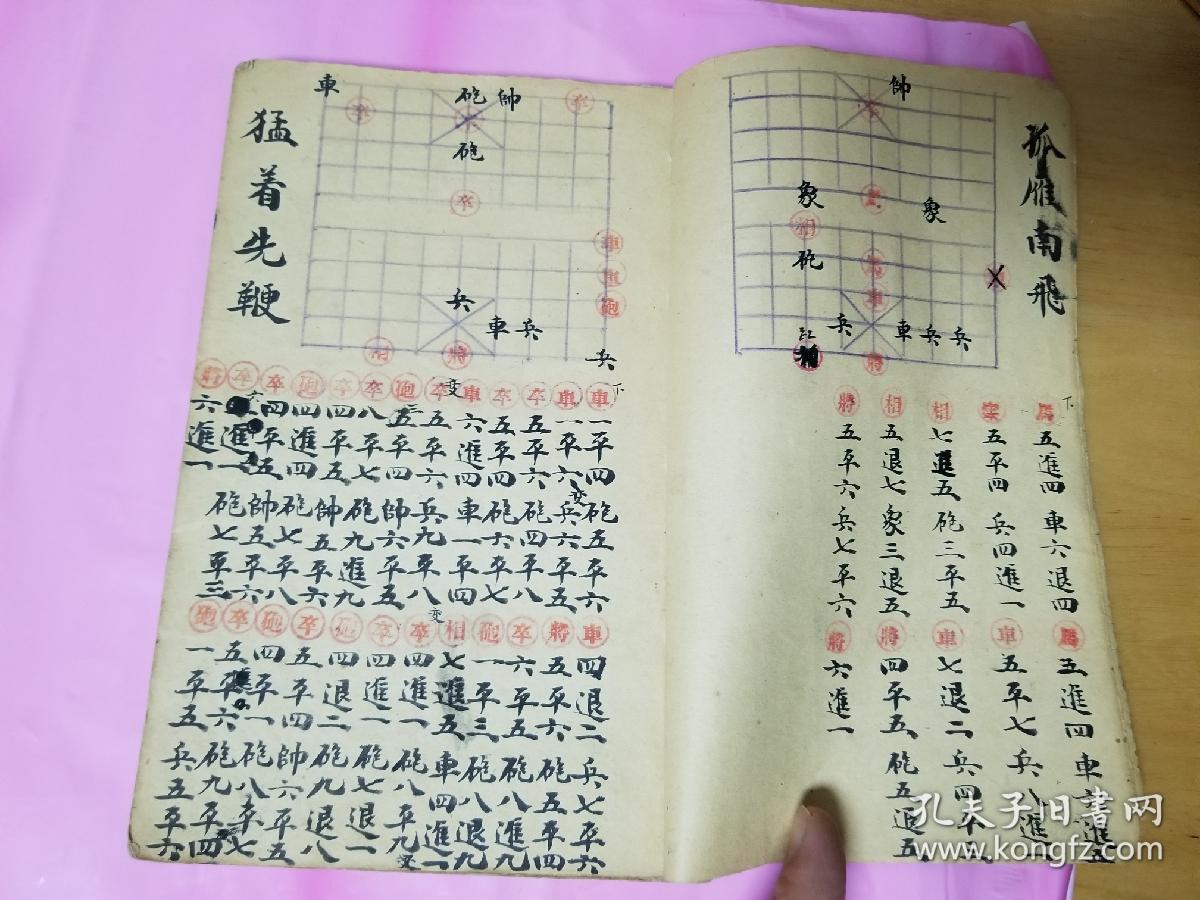 孤雁南飛
帥
卒
象
象
相
砲
車
兵
車兵兵
紅
將
下
馬五進四 車六退四
象五平四 兵四進一
相七進五 砲三平五
相五退七 象三退五
將五平六 兵七平六
馬五進四 車進
車五平七 兵八進
車七退二 兵四平五
將四平五 砲五退五
將六進一
猛着先鞭
車
砲帥
卒
卒
砲
卒
車
車
砲
兵
車兵
兵
將
下
車一平四 砲五平六
車一平六 变 兵六平五
卒五平六 砲四平八
卒五平四 砲六平七
車六進四 車一平四
变
卒五平六 兵九平八
砲五平四 帥六平五
卒八平七 砲九進九
卒四平五 帥五平六
砲四進四 砲七平八
卒四平五 帥五平六
卒進一
將六進一 砲七平三
車四退二 兵七平六
將五平六 砲五平四
卒六平五 砲八進九
砲一平三 砲八退九
相七進五 車四進一
变
卒四進一 砲八平九
变
卒四進一 砲七退一
砲四退二 砲九退八
卒五平四 帥六平五
砲四平一 砲八平七
卒五平六 砲九平四
砲一平五 兵五平六
孔夫子旧書网
www.kongfz.com